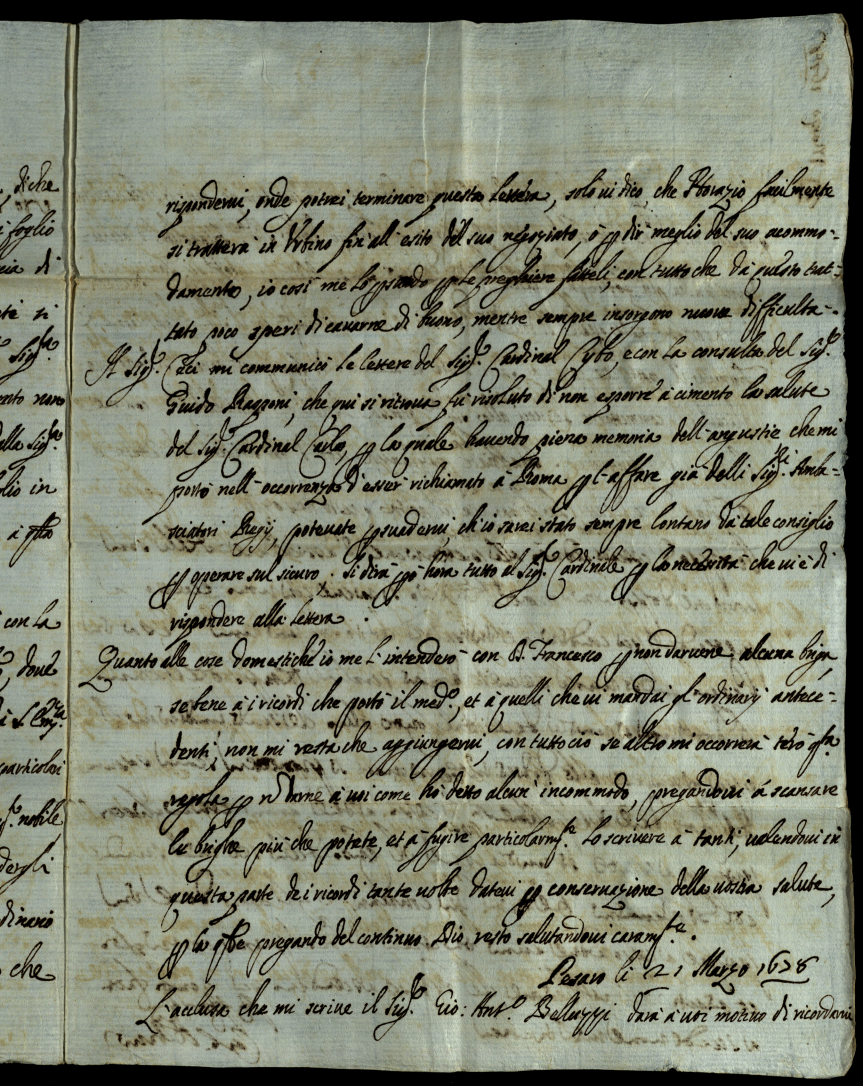 di che
i foglio
cia di
te si
Sig.ra
non
alla Sig.ra
lio in
a q.sto
con la
doue
particolari
nobile
dergli
dinario
che
risponderui, onde potrei terminare questa Lettera, solo ui dico, che Horazio facilmente
si tratterà in Vrbino fin all' esito del suo negoziato, ò p dir meglio del suo acommo-
damento, io così me lo p̱suado p le preghiere fatteli, con tutto che da questo trat-
tato poco speri di cauarne di buono, mentre sempre insorgono nuoue difficulta-.
Il Sig.r Ceci mi communicò le lettere del Sig.r Cardinal Cybo, e con la consulta del Sig.r
Guido Rangoni, che qui si ritroua fù risoluto di non esporre à cimento la salute
del Sig.r Cardinal Carlo, p la quale hauendo piena memoria dell' angustie che mi
portò nell' occorrenza d'esser richiamato à Roma p l'affare già delli Sig.ri Amba-
sciatori Regij, poteuate p̱suaderui ch'io sarei stato sempre lontano da tale consiglio
p operare sul sicuro. Si dirà p̱ò hora tutto al Sig.r Cardinale p la necessità che ui è di
rispondere alla lettera.
Quanto alle cose domestiche io me l'intenderò con D. Francesco p non daruene alcuna briga,
se bene à i ricordi che portò il med.o, et à quelli che ui mandai gl' ordinarij antece-
denti, non mi resta che aggiungerui, con tutto ciò se altro mi occorrerà terrò q.sta
regola p nō darne à uoi come hò detto alcun incommodo, p̱gandoui à scansare
le brighe più che potete, et à fugire particolarm.te lo scriuere à tanti, ualendoui in
questa parte de i ricordi tante uolte dateui p conseruazione della uostra salute,
p la q̱le pregando del continuo Dio, resto salutandoui caram.te.
Pesaro li 21 Marzo 1678
L'acclusa che mi scriue il Sig.r Gio: Ant.o Belluzzi darà à uoi motiuo di ricordarui